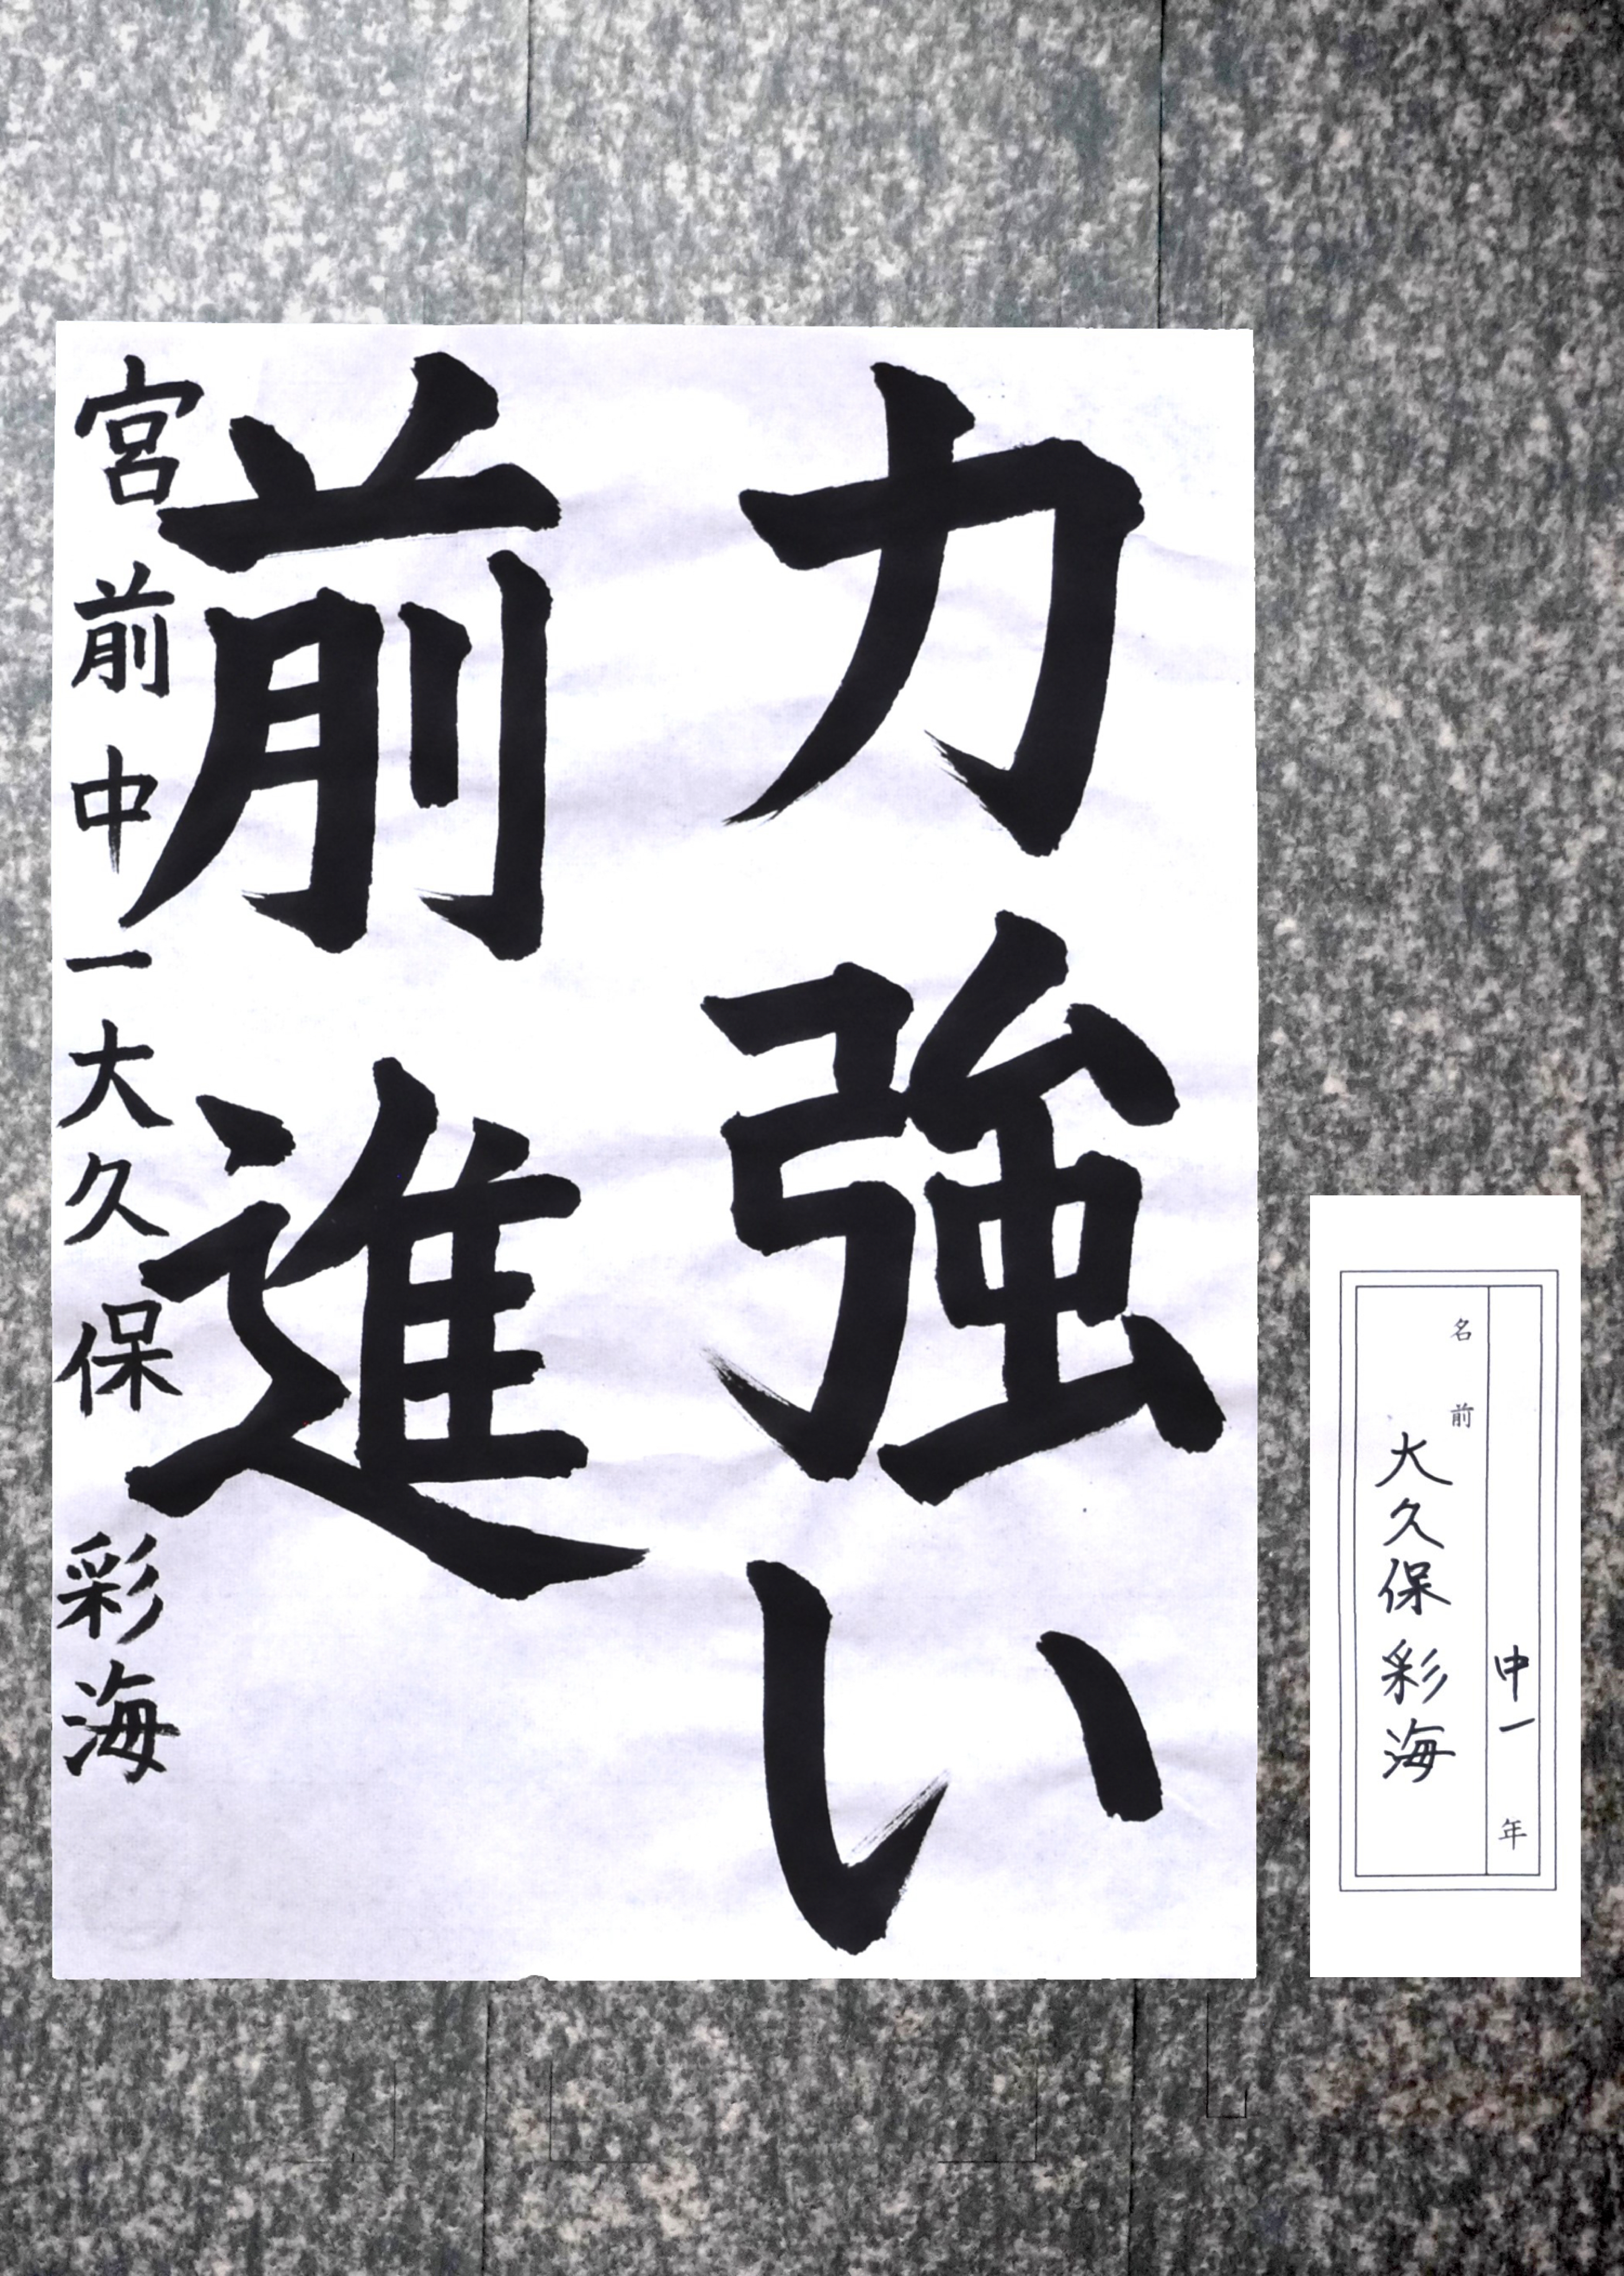 力強い
前進
宮前中一大久保彩海
中一年
名前
大久保彩海